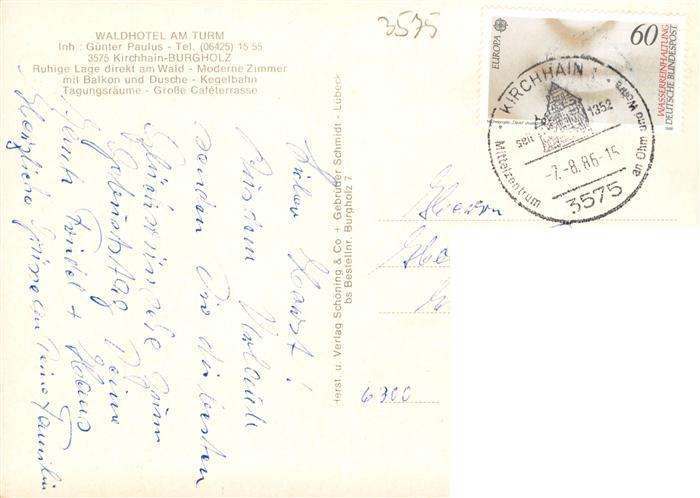 WALDHOTEL AM TURM
Inh.: Günter Paulus - Tel. (06425) 15 55
3575 Kirchhain-BURGHOLZ
Ruhige Lage direkt am Wald - Moderne Zimmer
mit Balkon und Dusche - Kegelbahn
Tagungsräume - Große Caféterrasse
3575
EUROPA
60
WASSERREINHALTUNG
DEUTSCHE BUNDESPOST
KIRCHHAIN
seit 1352
-7.-8.86-15
Mittelzentrum an Ohm und Wohra
3575
Herst. u. Verlag Schöning & Co + Gebrüder Schmidt - Lübeck
bs Bestellnr. Burgholz 7
Lieber Horst!
Aus dem Urlaub
senden wir die besten
Glückwünsche zum
Geburtstag Deine
Tante Friedel + Hans
Herzliche Grüße an Deine Familie
Herrn
6300